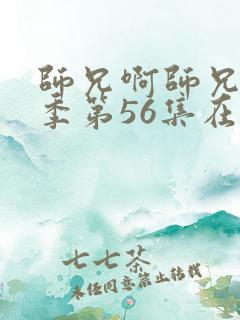 師兄啊師兄
季第56集在
七七茶
未經同意禁止轉載